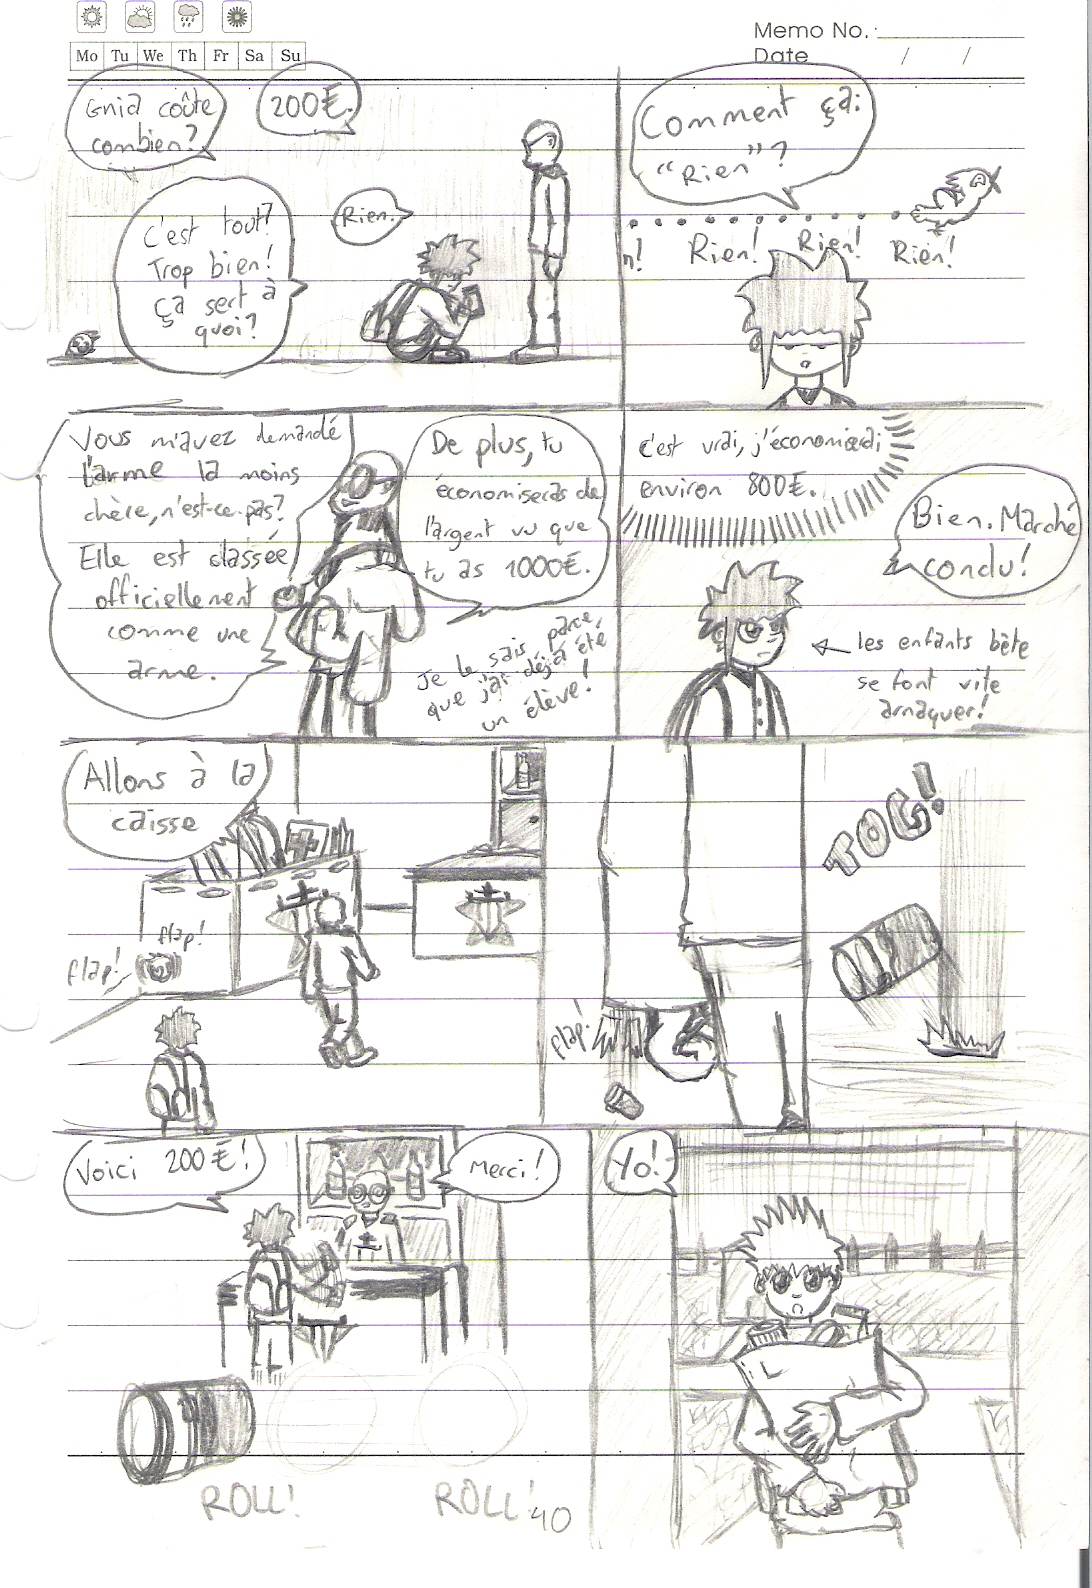 Memo No.:
Date / /
Mo Tu We Th Fr Sa Su
Gnid coûte
combien?
200€.
C'est tout?
Trop bien!
Ça sert à
quoi?
Rien.
Comment ça:
"Rien"?
n! Rien! Rien! Rien!
Vous m'avez demandé
l'arme la moins
chère, n'est-ce-pas?
Elle est classée
officiellement
comme une
arme.
De plus, tu
économiseras de
l'argent vu que
tu as 1000€.
Je le sais parce
que j'ai déjà été
un élève!
C'est vrai, j'économiserai
environ 800€.
Bien. Marché
conclu!
les enfants bête
se font vite
arnaquer!
Allons à la
caisse
flap!
flap!
flap!
TOG!
Voici 200€!
Merci!
Yo!
ROLL!
ROLL!
40